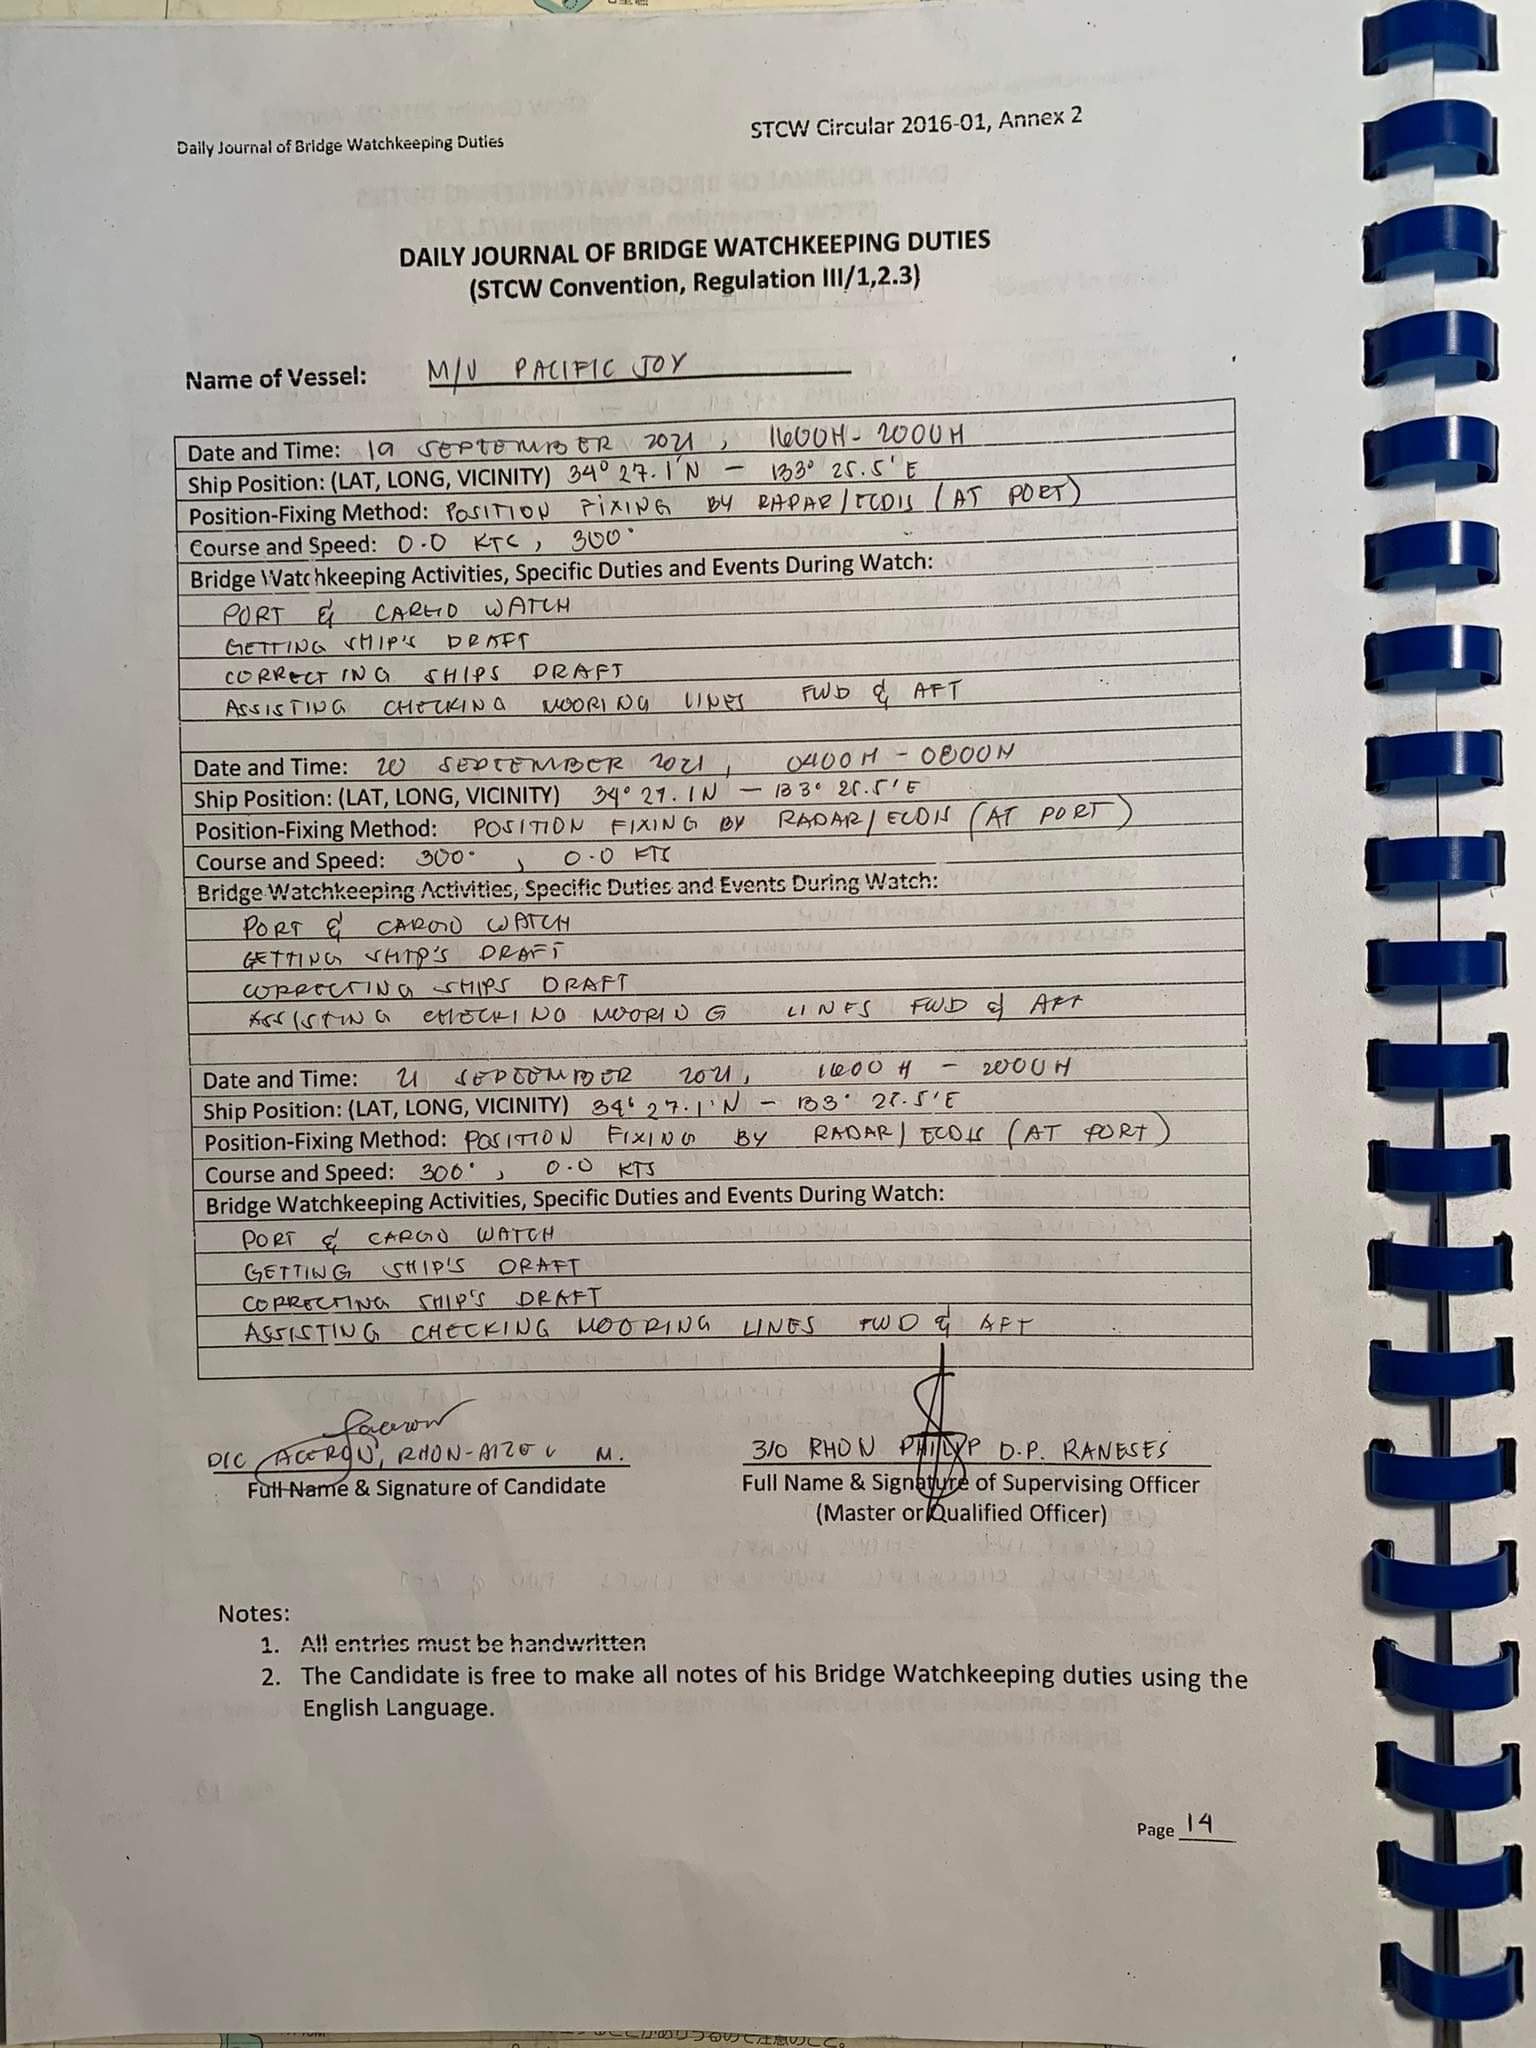 Daily Journal of Bridge Watchkeeping Duties
STCW Circular 2016-01, Annex 2
DAILY JOURNAL OF BRIDGE WATCHKEEPING DUTIES
(STCW Convention, Regulation III/1,2.3)
Name of Vessel: M/V PACIFIC JOY
Date and Time: 19 SEPTEMBER 2021, 1600H - 2000H
Ship Position: (LAT, LONG, VICINITY) 34° 27.1'N - 133° 25.5'E
Position-Fixing Method: POSITION FIXING BY RADAR/ECDIS (AT PORT)
Course and Speed: 0.0 KTS, 300°
Bridge Watchkeeping Activities, Specific Duties and Events During Watch:
PORT & CARGO WATCH
GETTING SHIP'S DRAFT
CORRECTING SHIPS DRAFT
ASSISTING CHECKING MOORING LINES FWD & AFT
Date and Time: 20 SEPTEMBER 2021, 0400H - 0800H
Ship Position: (LAT, LONG, VICINITY) 34° 27.1N - 133° 25.5'E
Position-Fixing Method: POSITION FIXING BY RADAR/ECDIS (AT PORT)
Course and Speed: 300°, 0.0 KTS
Bridge Watchkeeping Activities, Specific Duties and Events During Watch:
PORT & CARGO WATCH
GETTING SHIP'S DRAFT
CORRECTING SHIPS DRAFT
ASSISTING CHECKING MOORING LINES FWD & AFT
Date and Time: 21 SEPTEMBER 2021, 1600H - 2000H
Ship Position: (LAT, LONG, VICINITY) 34° 27.1'N - 133° 25.5'E
Position-Fixing Method: POSITION FIXING BY RADAR/ECDIS (AT PORT)
Course and Speed: 300°, 0.0 KTS
Bridge Watchkeeping Activities, Specific Duties and Events During Watch:
PORT & CARGO WATCH
GETTING SHIP'S DRAFT
CORRECTING SHIP'S DRAFT
ASSISTING CHECKING MOORING LINES FWD & AFT
D/C ACERON, M.
3/O RHON PHILIP D.P. RANESES
Full Name & Signature of Candidate
Full Name & Signature of Supervising Officer
(Master or Qualified Officer)
Notes:
1. All entries must be handwritten
2. The Candidate is free to make all notes of his Bridge Watchkeeping duties using the
English Language.
Page 14